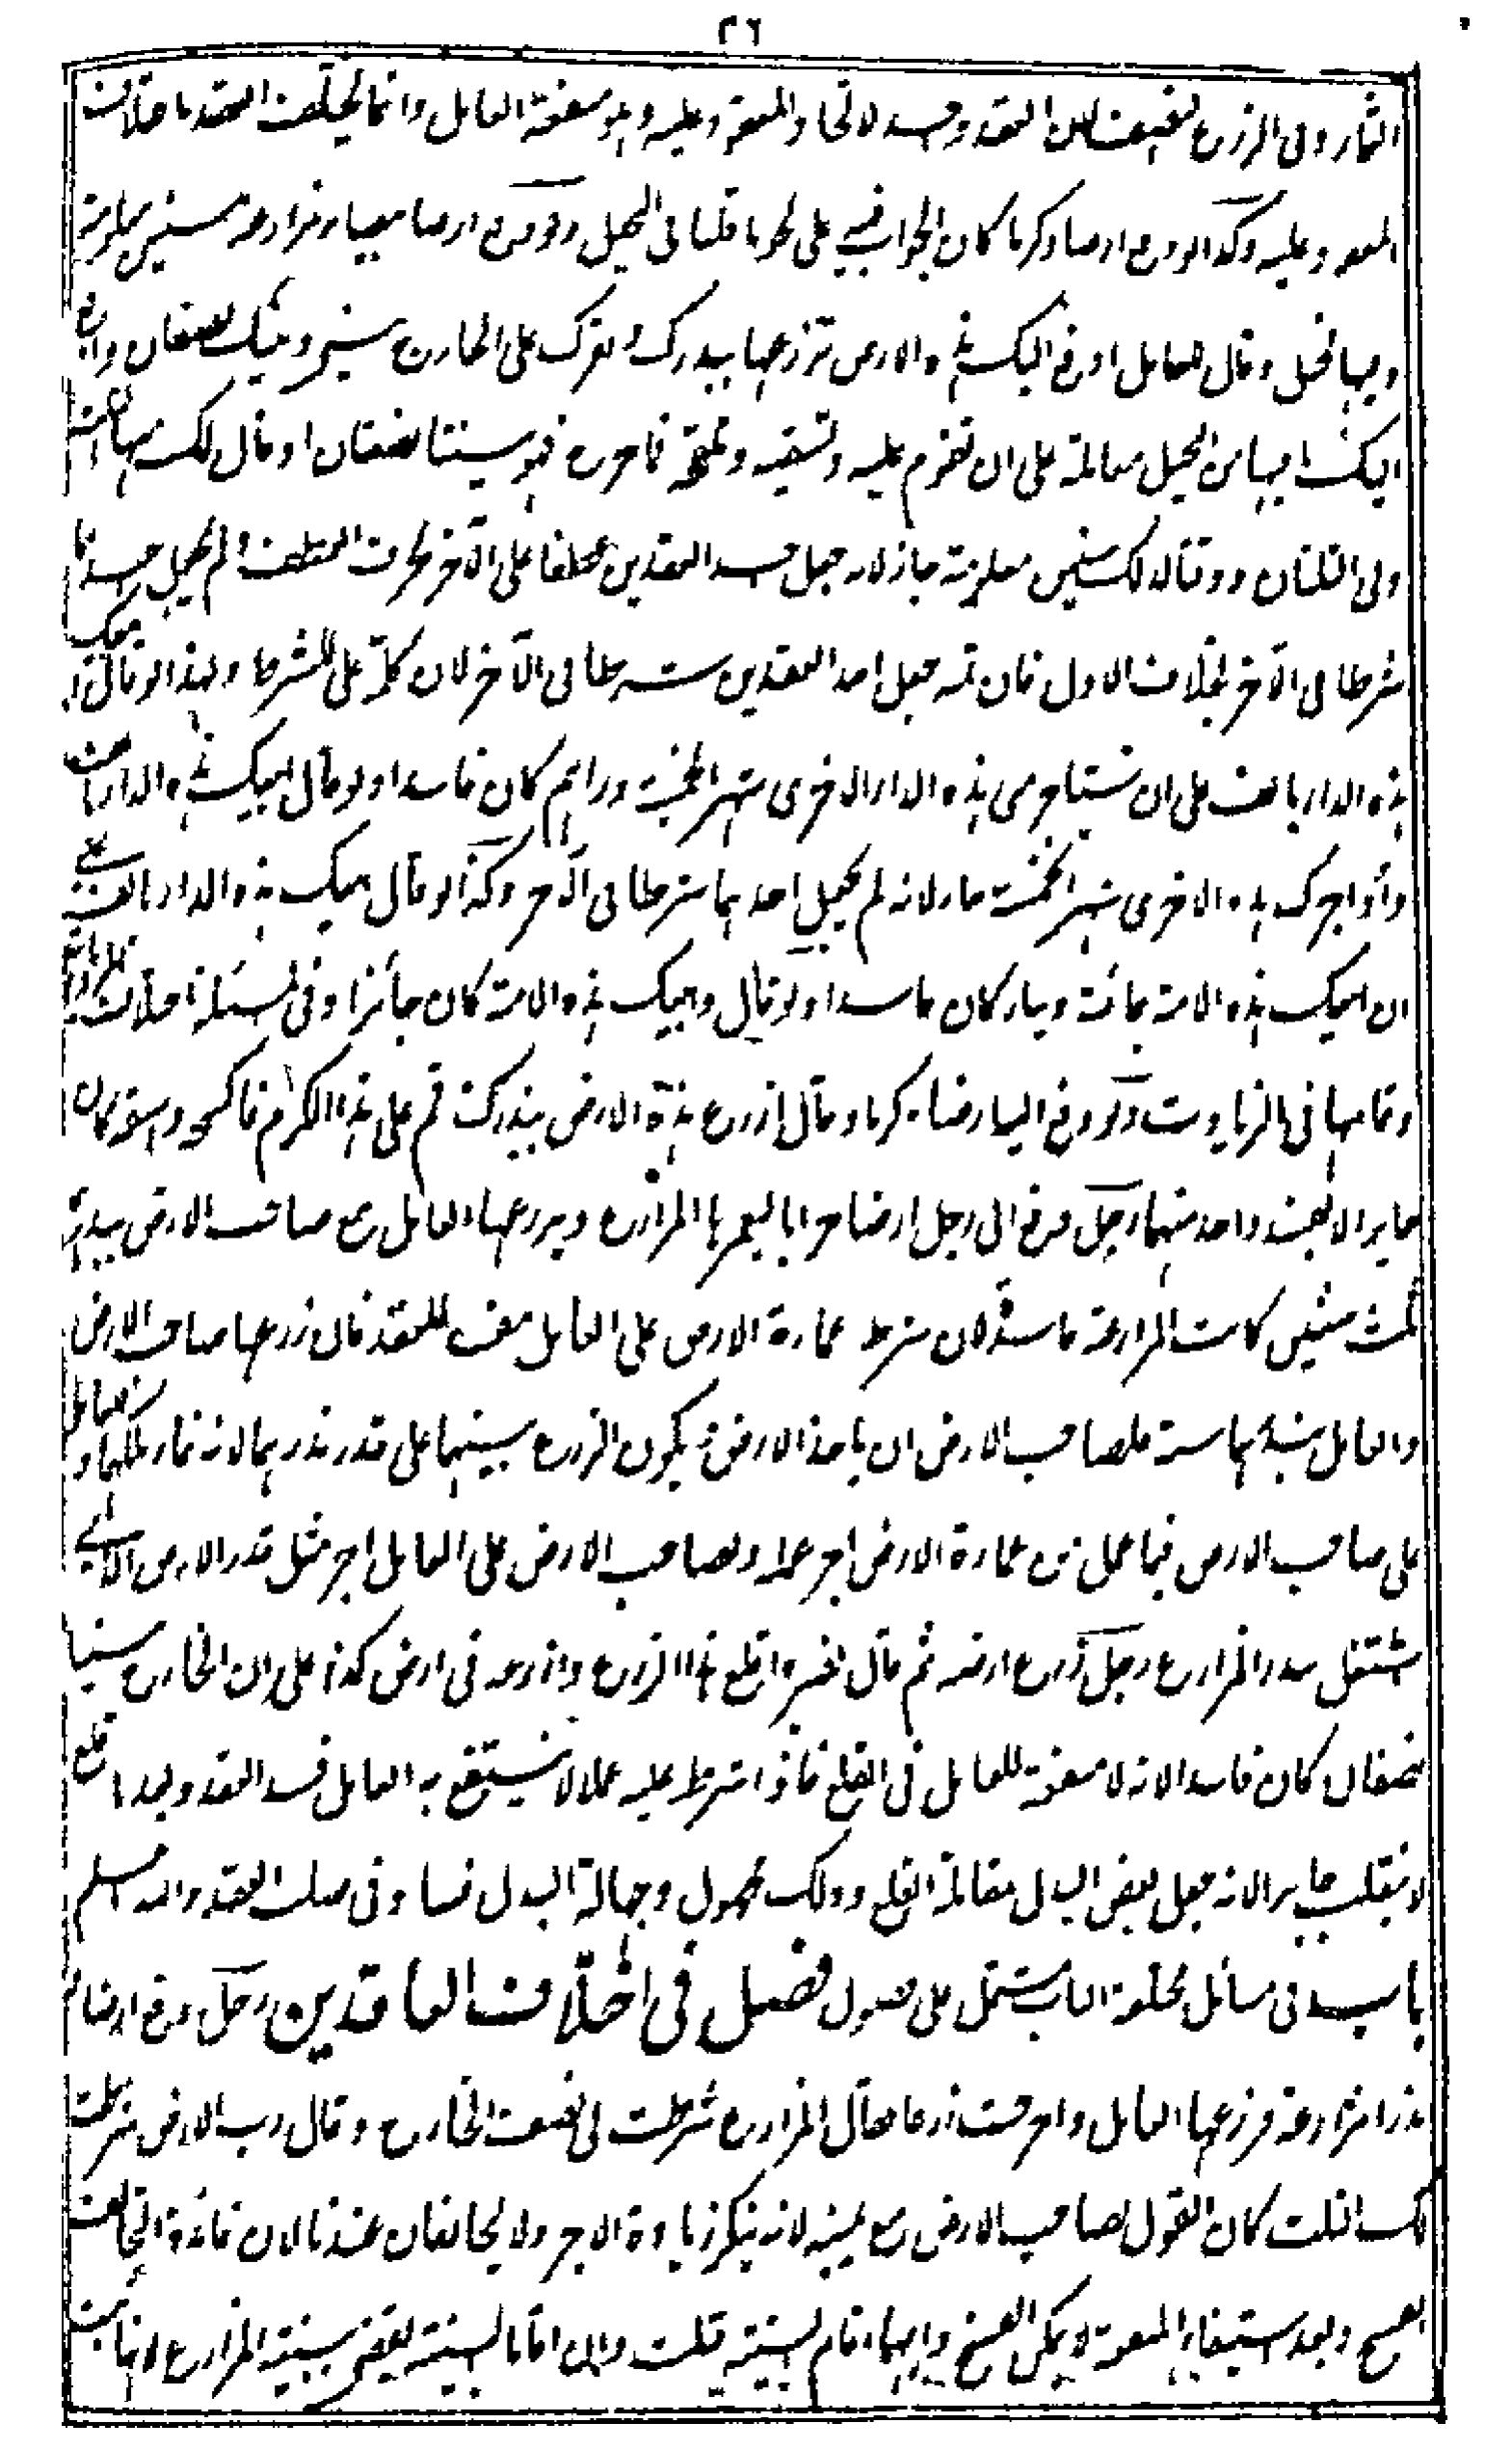 ٢٦
الثمار وفى الزرع لنفسه لان العقد وجد لاتحاد المعقود عليه وهو منفعة العامل وانما يختلف العقد باختلاف
المعقود عليه وكذا لو دفع ارضا وكرما كان الجواب فيه على نحو ما قلنا فى النخيل ولو دفع ارضا بيضاء مزارعة سنين معلومة
وفيها نخيل وقال للعامل ادفع اليك هذه الارض تزرعها ببذرك وبقرك على ان الخارج بينى وبينك نصفان وادفع
اليك ما فيها من النخيل معاملة على ان تقوم عليه وتسقيه وتلقحه فما خرج فهو بيننا نصفان او قال لك منهما الثلث
ولى الثلثان ووقتا لذلك سنين معلومة جاز لانه جعل احد العقدين معطوفا على الآخر بحرف العطف ولم يجعل احدهما
شرطا فى الآخر بخلاف الاول فان ثمه جعل احد العقدين شرطا فى الآخر لان كلمة على للشرط ولهذا لو قال ابيعك
هذه الدار بالف على ان تستاجر منى هذه الدار الاخرى شهرا بخمسة دراهم كان فاسدا ولو قال ابيعك هذه الدار بالف
واواجرك هذه الاخرى شهرا بخمسة جاز لانه لم يجعل احدهما شرطا فى الآخر وكذا لو قال ابيعك هذه الدار بالف على
ان ابيعك هذه الامة بمائة دينار كان فاسدا ولو قال وابيعك هذه الامة كان جائزا وفى المسئلة اختلاف
وتمامها فى الزيادات ولو دفع اليه ارضا وكرما وقال ازرع هذه الارض ببذرك وقم على هذا الكرم فاكسحه واسقه كان
جايزا لانه لم يجعل واحد منهما رجل دفع الى رجل ارضا خرابا ليعمرها المزارع ويزرعها العامل مع صاحب الارض ببذرهما
ثلث سنين كانت المزارعة فاسدة لان شرط عمارة الارض على العامل مفسد للعقد فان زرعها صاحب الارض
والعامل ببذرهما سنة فلصاحب الارض ان ياخذ الارض ويكون الزرع بينهما على قدر بذرهما لانه نماء ملكهما وللعامل
على صاحب الارض فيما عمل من عمارة الارض اجر عمله ولصاحب الارض على العامل اجر مثل قدر الارض التى
اشتغل ببذر المزارع رجل زرع ارضه ثم قال لغيره اقلع هذا الزرع وازرعه فى ارض كذا على ان الخارج بيننا
نصفان كان فاسدا لانه لا منفعة للعامل فى القلع فاذا شرط عليه عملا لا ينتفع به العامل فسد العقد وبعد ما قلع
لا ينقلب جايزا لانه جعل بعض البدل مقابلة القلع وذلك مجهول وجهالة البدل فساد فى صلب العقد والله اعلم
باب فى مسائل مختلفة الباب يشتمل على فصول فصل فى اختلاف العاقدين رجل دفع ارضا
وبذرا مزارعة فزرعها العامل واخرجت زرعا فقال المزارع شرطت لى نصف الخارج وقال رب الارض شرطت
لك الثلث كان القول لصاحب الارض مع يمينه لانه ينكر زيادة الاجر ولا يتحالفان عندنا لان فائدة التحالف
الفسخ وبعد استيفاء المنفعة لا يمكن الفسخ وايهما اقام البينة قبلت وان اقاما البينة يقضى ببينة المزارع لانها تثبت